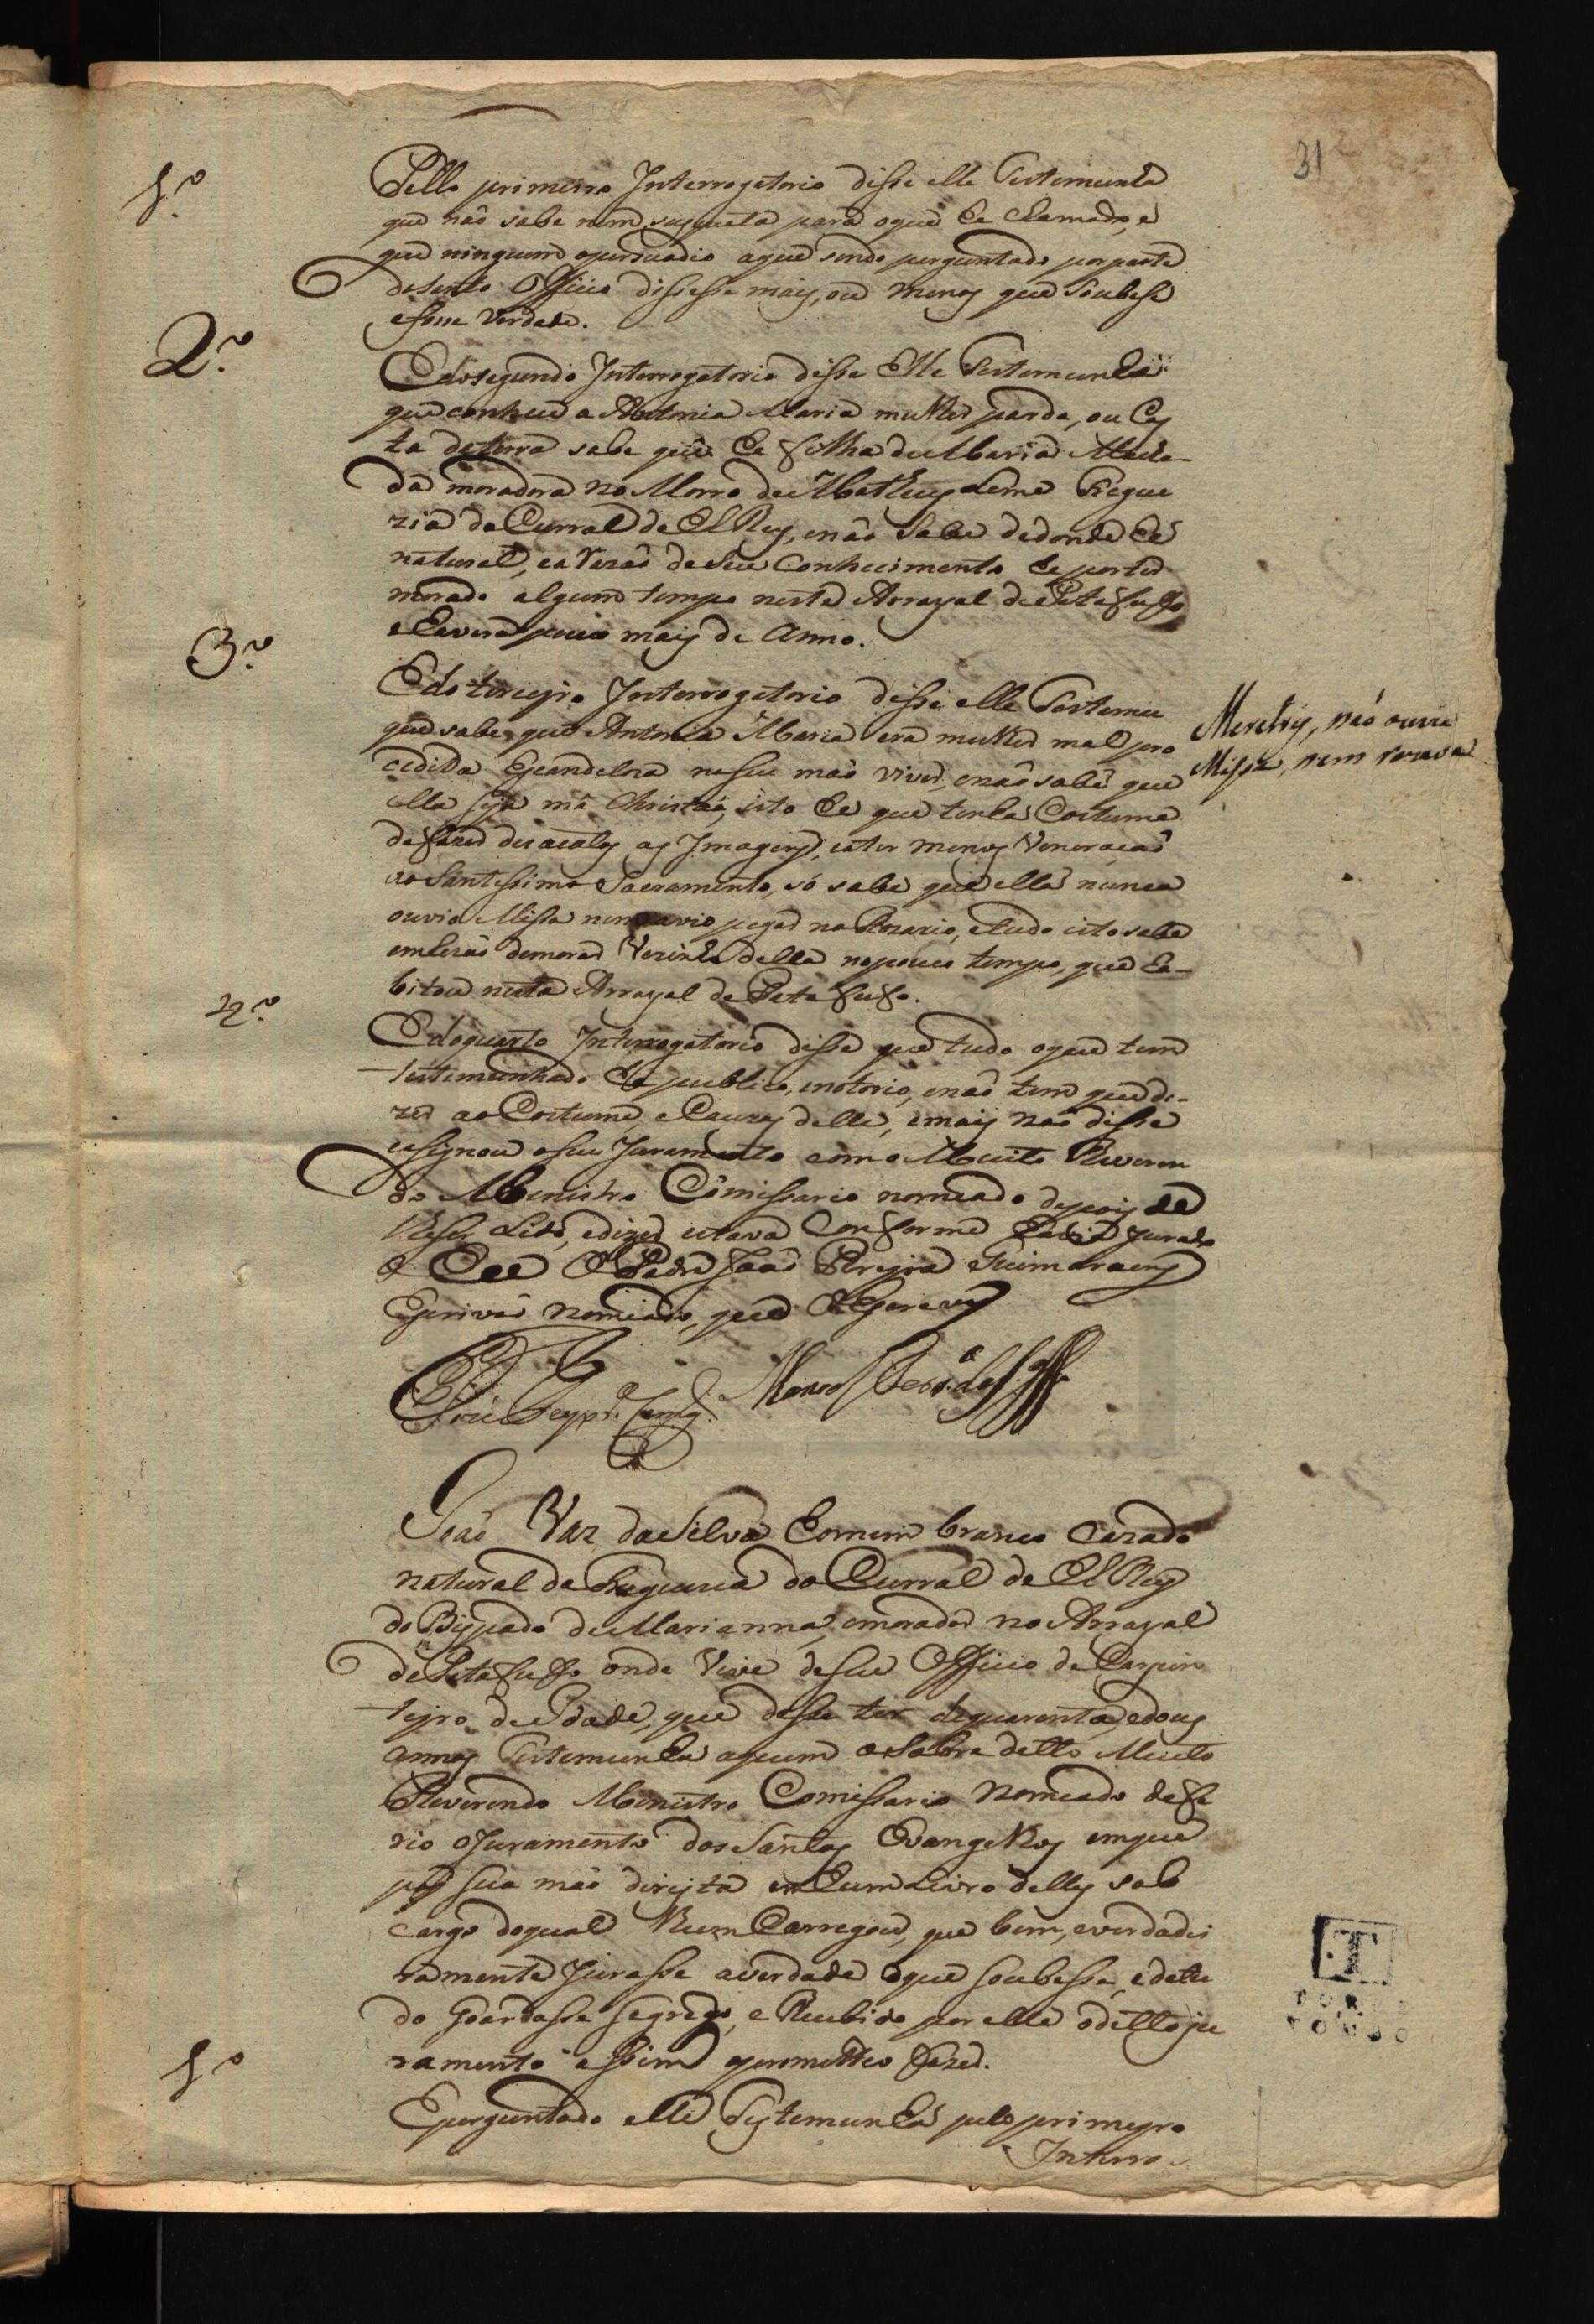 31
1.º
Pello primeiro Interrogatorio disse elle Testemunha
que não sabe nem suspeita para oque he chamado, e
que ninguem opersuadio aque sendo perguntado porparte
dosanto Officio dissesse mais, ou menos que soubesse
efosse verdade.
2.º
Edosegundo Interrogatorio disse Elle Testemunha
queconhece a Antonia Maria mulher parda, ou Cas
ta daterra sabe que he filha deMaria
da moradora no Morro de Matheus Leme Fregue
zia do Curral de ElRey, enão sabe dedonde he
natural, earazão deseu Conhecimento he porter
morado algum tempo neste Arrayal de Patafufo
ehaverá pouco mais de anno.
3.º
Edo terceyro Interrogatorio disse elle Testemu
quesabe que Antonia Maria era mulher mal pro
cedida Escandeloza noseu mão viver, enão sabe que
ella seja má Christaã, isto he que tenha Costume
defazer desacatos as Imagens, eater menos Veneracaõ
ao Santissimo Sacramento, só sabe que ella nunca
ouvio Missa nem avio pegar no Rozario, etudo isto sabe
emrezão demorar Vezinho della nopouco tempo, que ha-
bitou neste Arrayal de Patafufo.
Meretriz, não ouvia
Missa, nem rezava
4.º
Edoquarto Interrogatorio disse que tudo oque tem
testemunhado he publico, enotorio, enão tem quedi-
zer ao Costume, eCouzas delle, emais não disse
easignou oseu Juramento como Muito Reveren
do Ministro Cômissario nomeado depois de
lheser Lido, edizer estava Conforme havia Jurado
e Eu O Padre João Pereyra Guimaraens
Escrivão Nomeado, que O Escrevy
João Vaz daSilva homem branco Cazado
natural da Freguezia do Curral de ElRey
do Bispado de Marianna, emorador no Arrayal
de Patafuffo onde Vive deseu Officio de Carpin
teyro de Idade, que disse ter dequarenta, edous
annos Testemunha aquem osobre ditto Muito
Reverendo Ministro Comissario Nomeado defe
rio oJuramento dos Santos Evangelhos emque
pos sua mão direyta em hum Livro delles sob
cargo doqual lhe en Carregou, que bem, everdadei
ramente Jurasse averdade doque soubesse, edetu
do Goardasse segredo, e Recebido por elle oditto ju
ramento assim oprometteo fazer.
1.º
Eperguntado elle Testemunha pelo primeyro
Interro-
T
TORRE
TOMBO